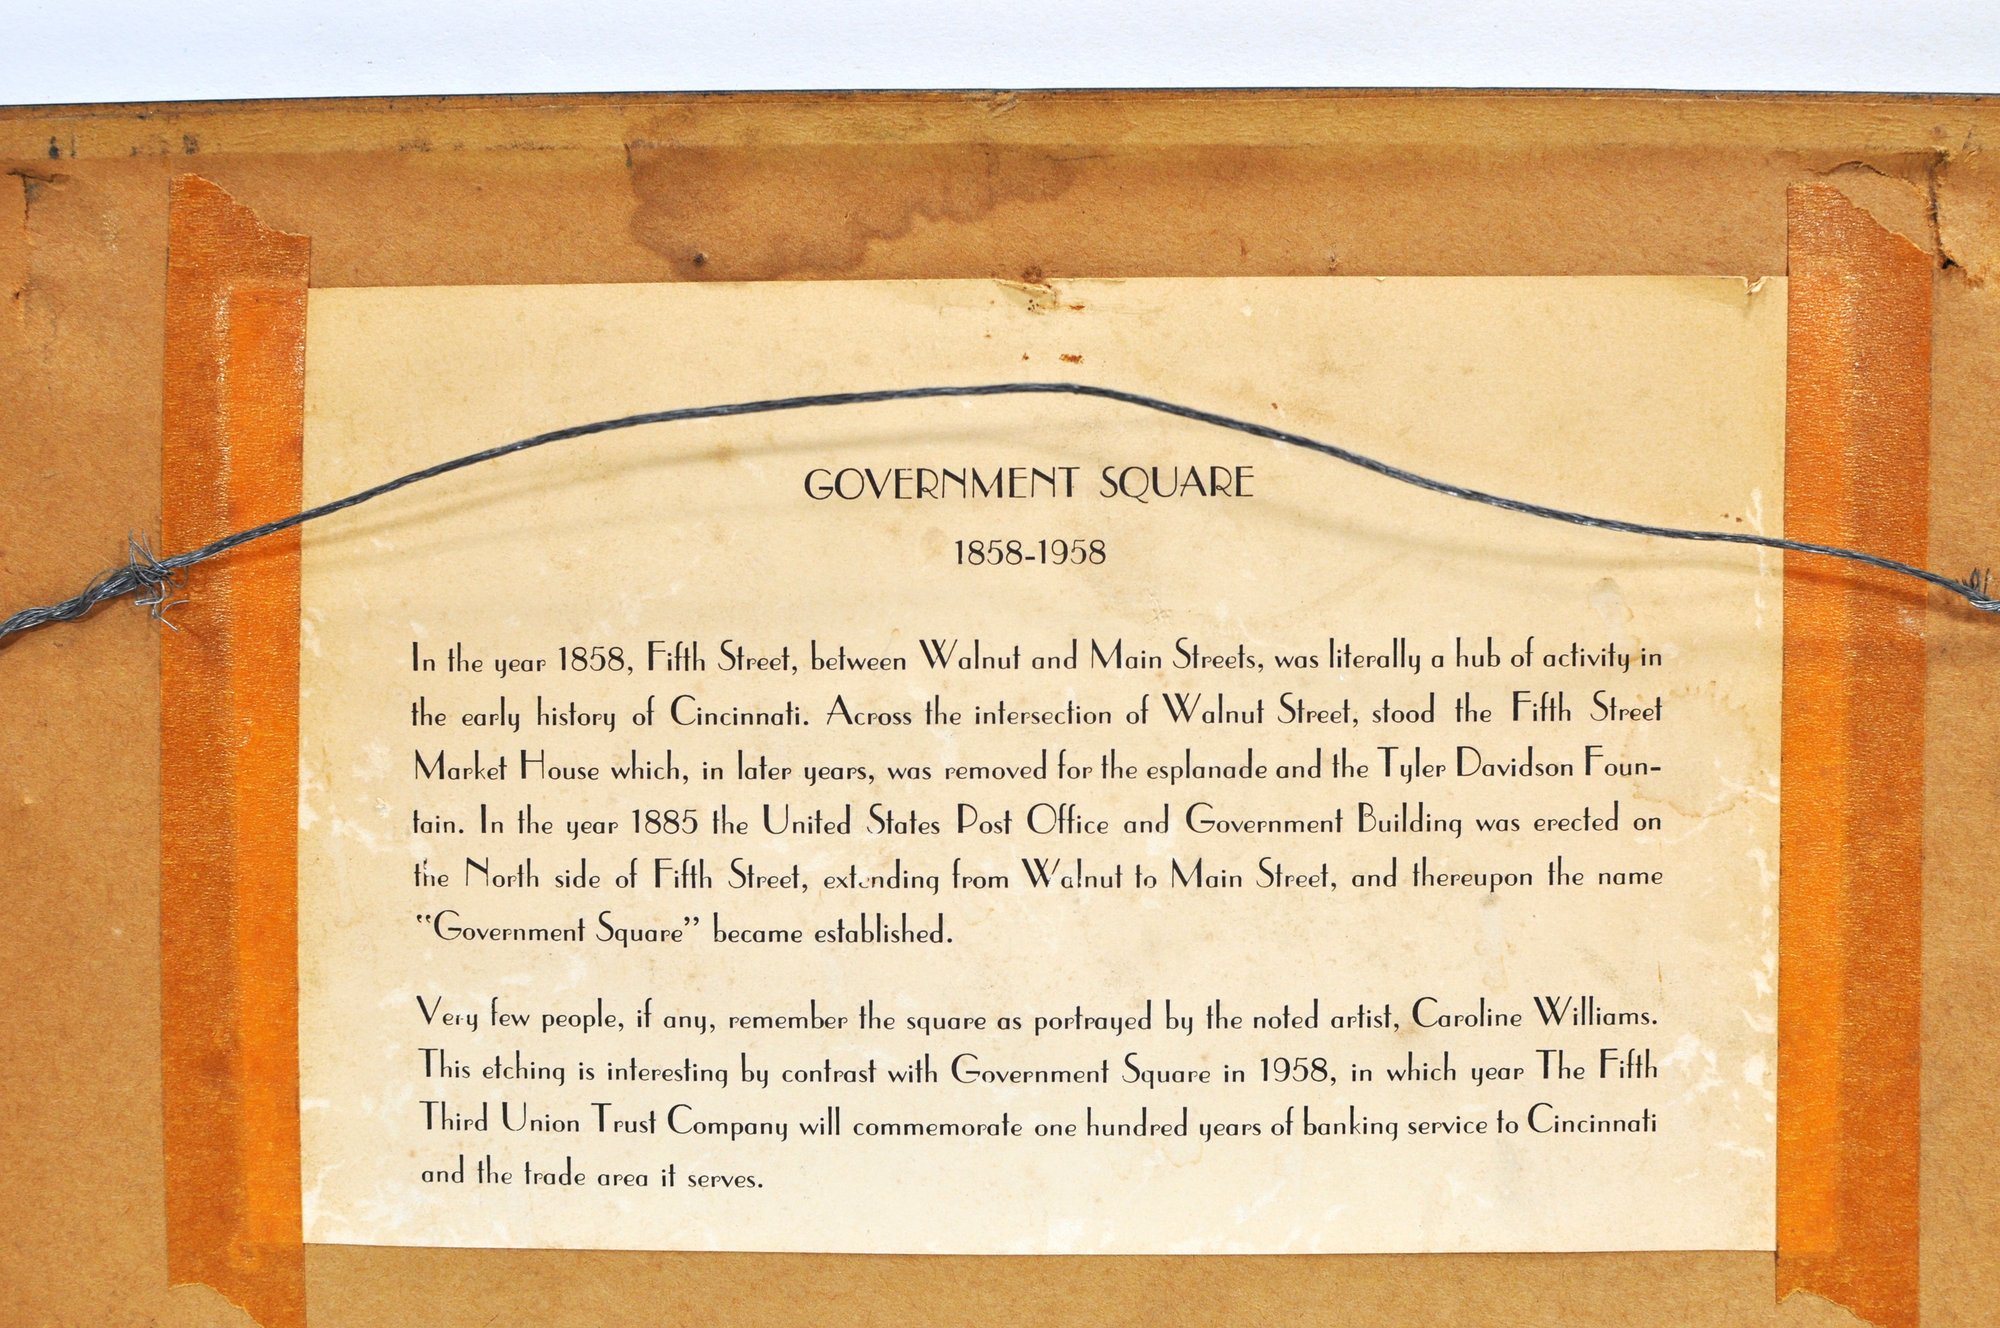 GOVERNMENT SQUARE
1858-1958
In the year 1858, Fifth Street, between Walnut and Main Streets, was literally a hub of activity in
the early history of Cincinnati. Across the intersection of Walnut Street, stood the Fifth Street
Market House which, in later years, was removed for the esplanade and the Tyler Davidson Foun-
tain. In the year 1885 the United States Post Office and Government Building was erected on
the North side of Fifth Street, extending from Walnut to Main Street, and thereupon the name
“Government Square” became established.
Very few people, if any, remember the square as portrayed by the noted artist, Caroline Williams.
This etching is interesting by contrast with Government Square in 1958, in which year The Fifth
Third Union Trust Company will commemorate one hundred years of banking service to Cincinnati
and the trade area it serves.